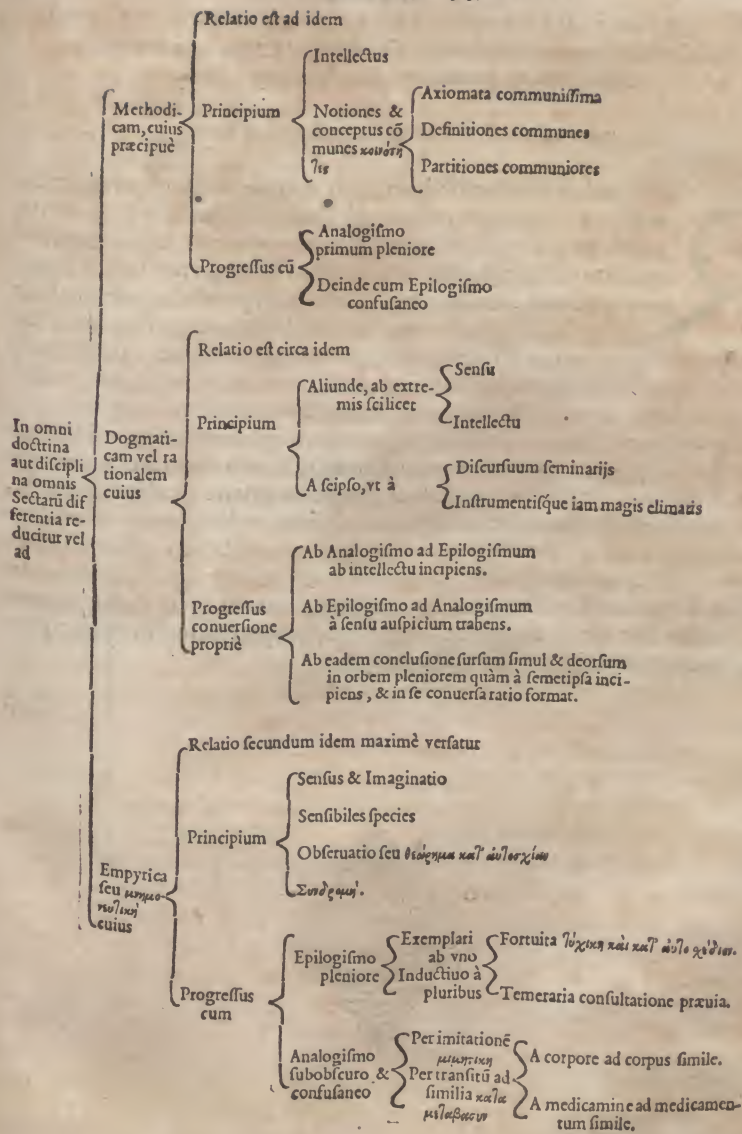 Relatio eſt ad idem
Intellectus
Methodi-
cam, cuius
præcipuè
Principium
Notiones &
conceptus cō
munes κοινότη
τες
Axiomata communiſſima
Definitiones communes
Partitiones communiores
Progreſſus cū
Analogiſmo
primum pleniore
Deinde cum Epilogiſmo
confuſaneo
In omni
doctrina
aut diſcipli
na omnis
Sectarū dif
ferentia re-
ducitur vel
ad
Relatio eſt circa idem
Dogmati-
cam vel ra
tionalem
cuius
Principium
Aliunde, ab extre-
mis ſcilicet
Senſu
Intellectu
A ſeipſo, vt à
Diſcurſuum ſeminarijs
Inſtrumentiſq́ue iam magis elimatis
Progreſſus
conuerſione
propriè
Ab Analogiſmo ad Epilogiſmum
ab intellectu incipiens.
Ab Epilogiſmo ad Analogiſmum
à ſenſu auſpicium trahens.
Ab eadem concluſione ſurſum ſimul & deorſum
in orbem pleniorem quàm à ſemetipſa inci-
piens, & in ſe conuerſa ratio format.
Empyrica
ſeu μνημο
νευτικὴ
cuius
Relatio ſecundum idem maximè verſatur
Principium
Senſus & Imaginatio
Senſibiles ſpecies
Obſeruatio ſeu θεώρημα κατ' αὐτοσχίαν
Συνδρομή.
Progreſſus
cum
Epilogiſmo
pleniore
Exemplari
ab vno
Inductiuo à
pluribus
Fortuita τύχικη καὶ κατ'
Temeraria conſultatione præuia.
Analogiſmo
ſubobſcuro &
confuſaneo
Per imitationē
μιμητικη
Per tranſitū ad
ſimilia κατα
μεταβασιν
A corpore ad corpus ſimile.
A medicamine ad medicamen-
tum ſimile.